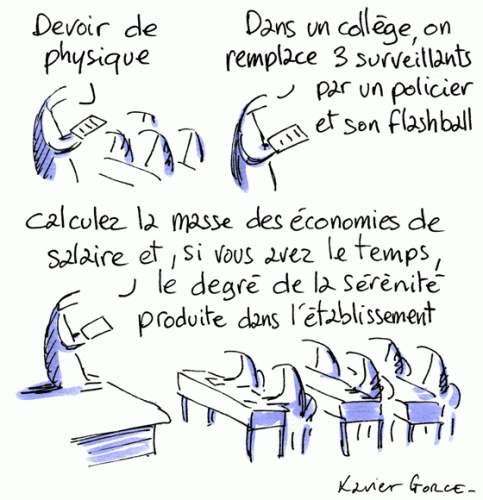 Devoir de
physique
Dans un collège, on
remplace 3 surveillants
par un policier
et son flashball
calculez la masse des économies de
salaire et, si vous avez le temps,
le degré de la sérènité
produite dans l'établissement
Xavier Gorce